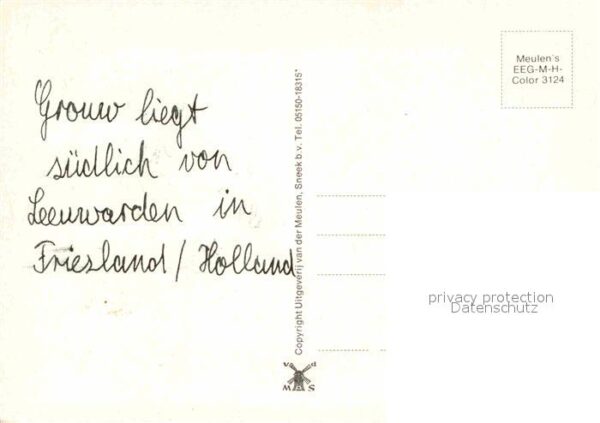 Grouw liegt
südlich von
Leeuwarden in
Friesland / Holland
Copyright Uitgeverij van der Meulen, Sneek b.v. Tel. 05150-18315*
v d
M S
Meulen's
EEG-M-H-
Color 3124
privacy protection
Datenschutz